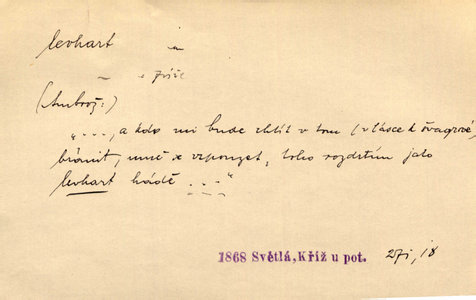 levhart
zvíře
(Ambrož:)
„...., a kdo mi bude chtít v tom (v lásce k švagrové)
bránit, mně se vzpouzet, toho rozdrtím jako
levhart hádě ...“
1868 Světlá, Kříž u pot. 18